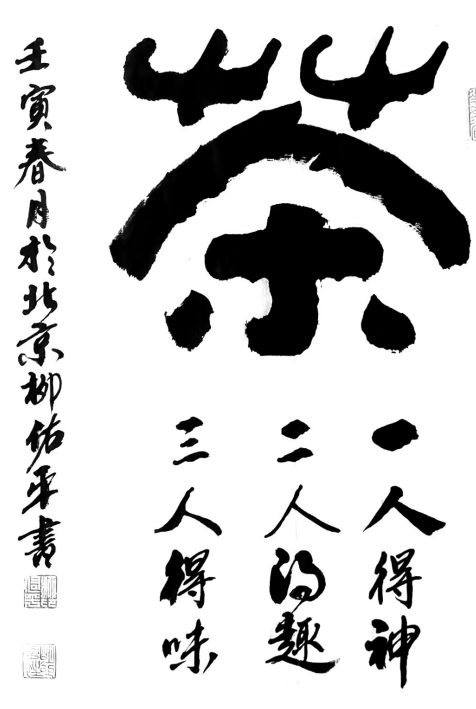 茶
一人得神
二人得趣
三人得味
壬寅春月於北京柳佑平書